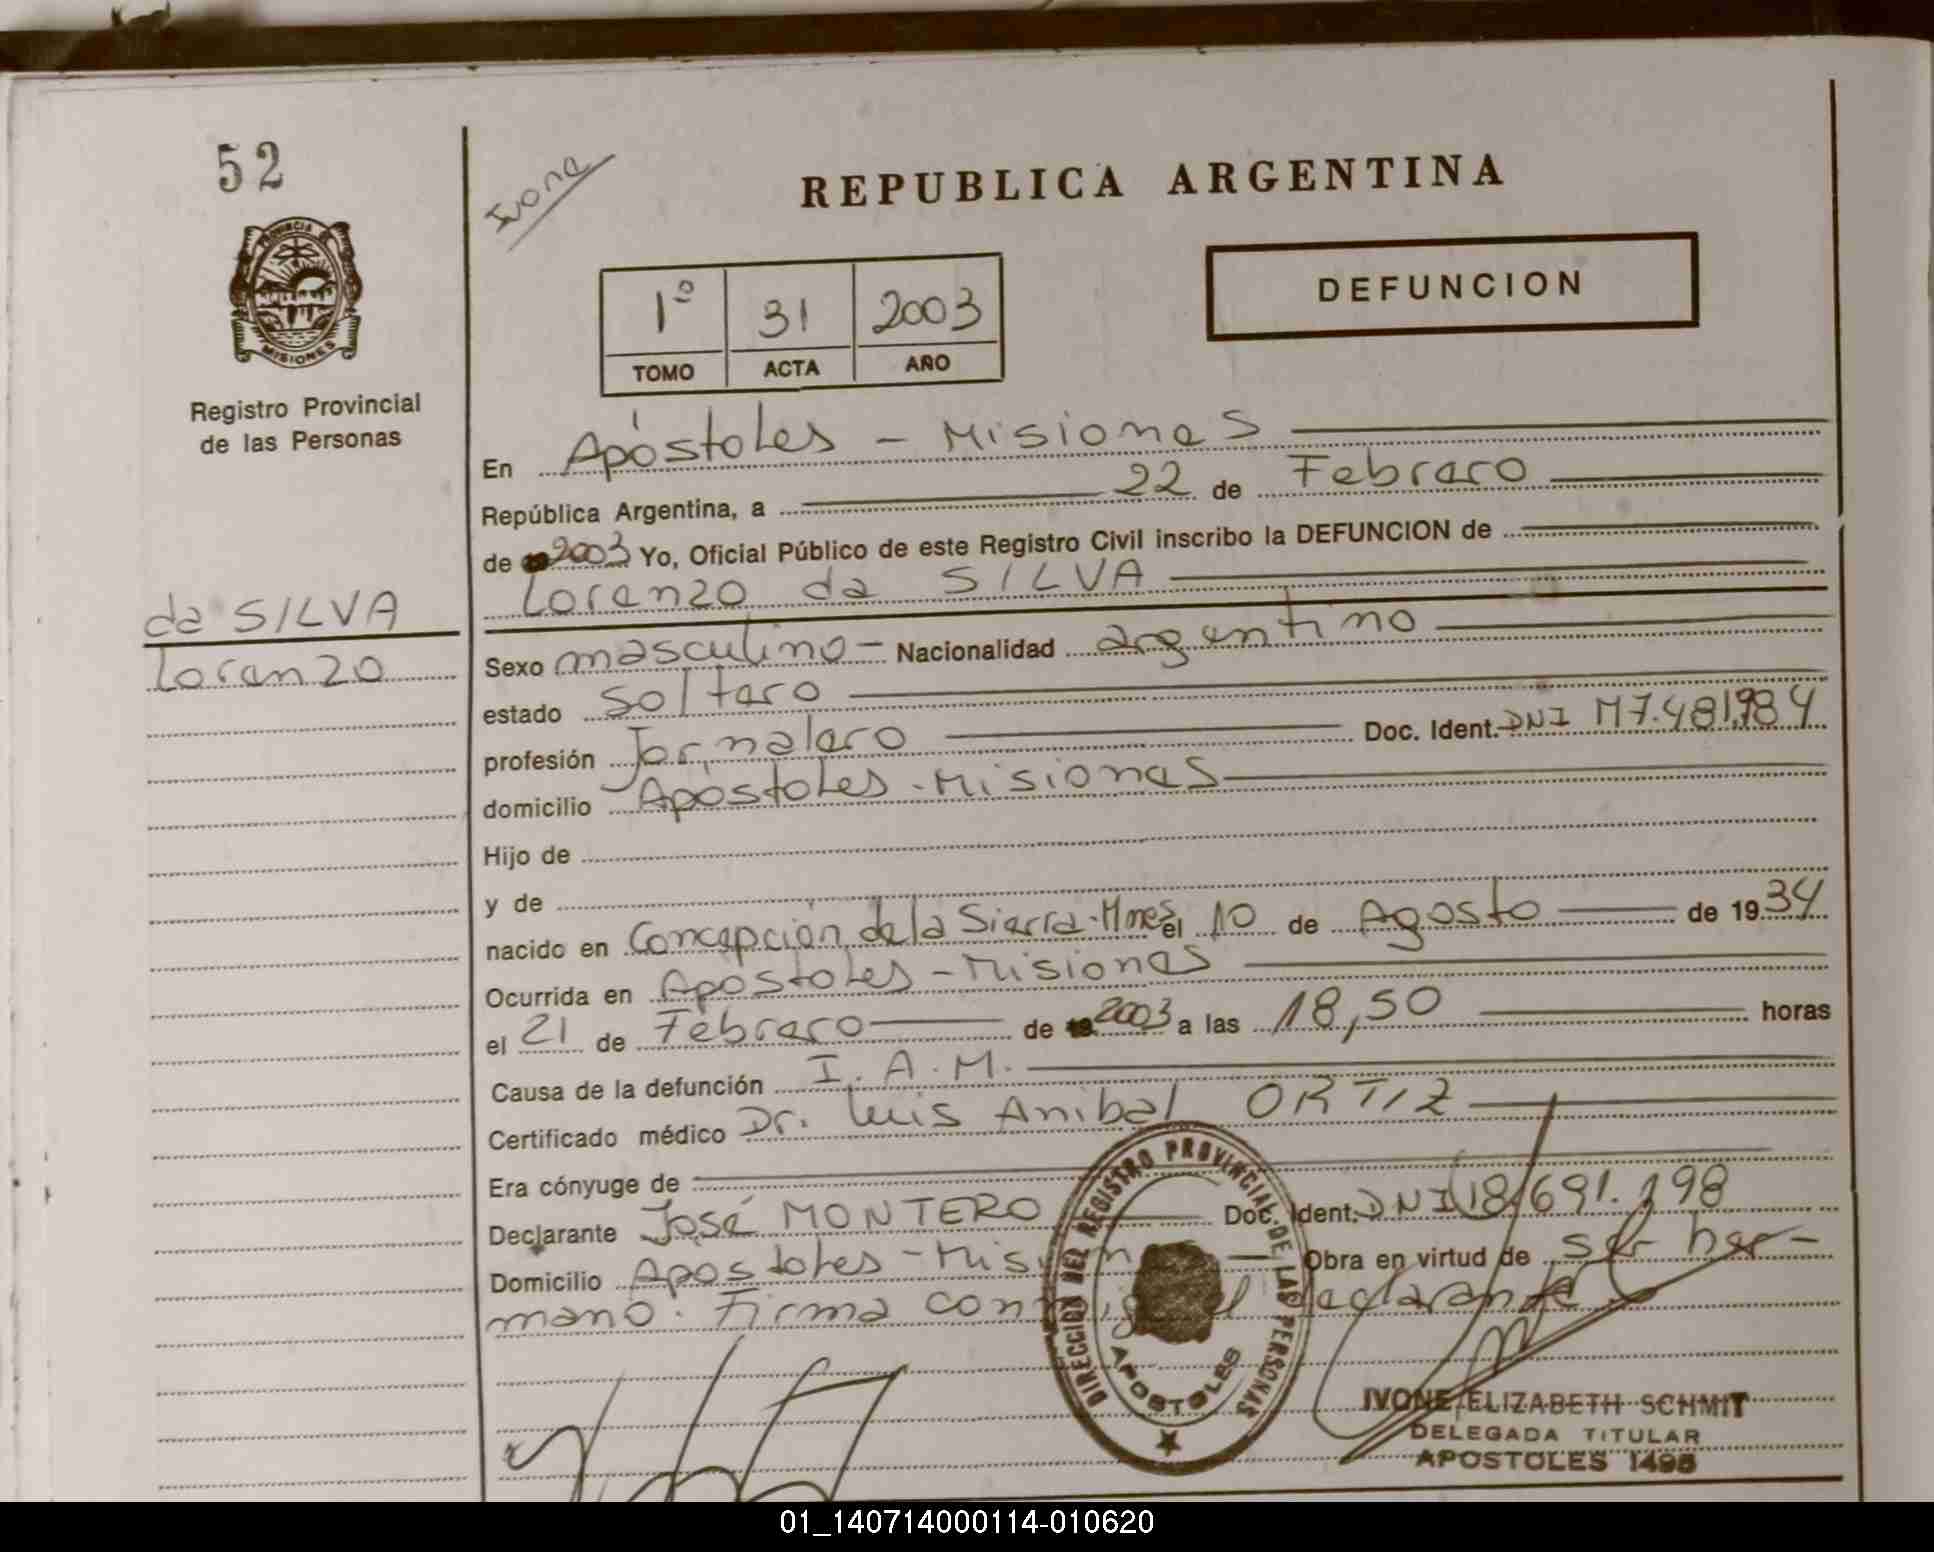 52
PROVINCIA DE
MISIONES
Registro Provincial
de las Personas
da SILVA
Lorenzo
Ivone
REPUBLICA ARGENTINA
DEFUNCION
1º 31 2003
TOMO ACTA AÑO
En Apóstoles - Misiones
República Argentina, a 22 de Febrero
de 2003 Yo, Oficial Público de este Registro Civil inscribo la DEFUNCION de
Lorenzo da SILVA
Sexo masculino - Nacionalidad argentino
estado soltero
profesión Jornalero Doc. Ident. DNI M7.481.984
domicilio Apóstoles - Misiones
Hijo de
y de
nacido en Concepción de la Sierra - Mnes el 10 de Agosto de 1934
Ocurrida en Apóstoles - Misiones
el 21 de Febrero de 2003 a las 18,50 horas
Causa de la defunción I.A.M.
Certificado médico Dr. Luis Anibal ORTIZ
Era cónyuge de
Declarante José MONTERO Doc. Ident. DNI 18.691.198
Domicilio Apóstoles - Misiones Obra en virtud de ser her-
mano. Firma conmigo el declarante
DIRECCION DEL REGISTRO PROVINCIAL DE LAS PERSONAS
APOSTOLES
IVONE ELIZABETH SCHMIT
DELEGADA TITULAR
APOSTOLES 1495
01_140714000114-010620